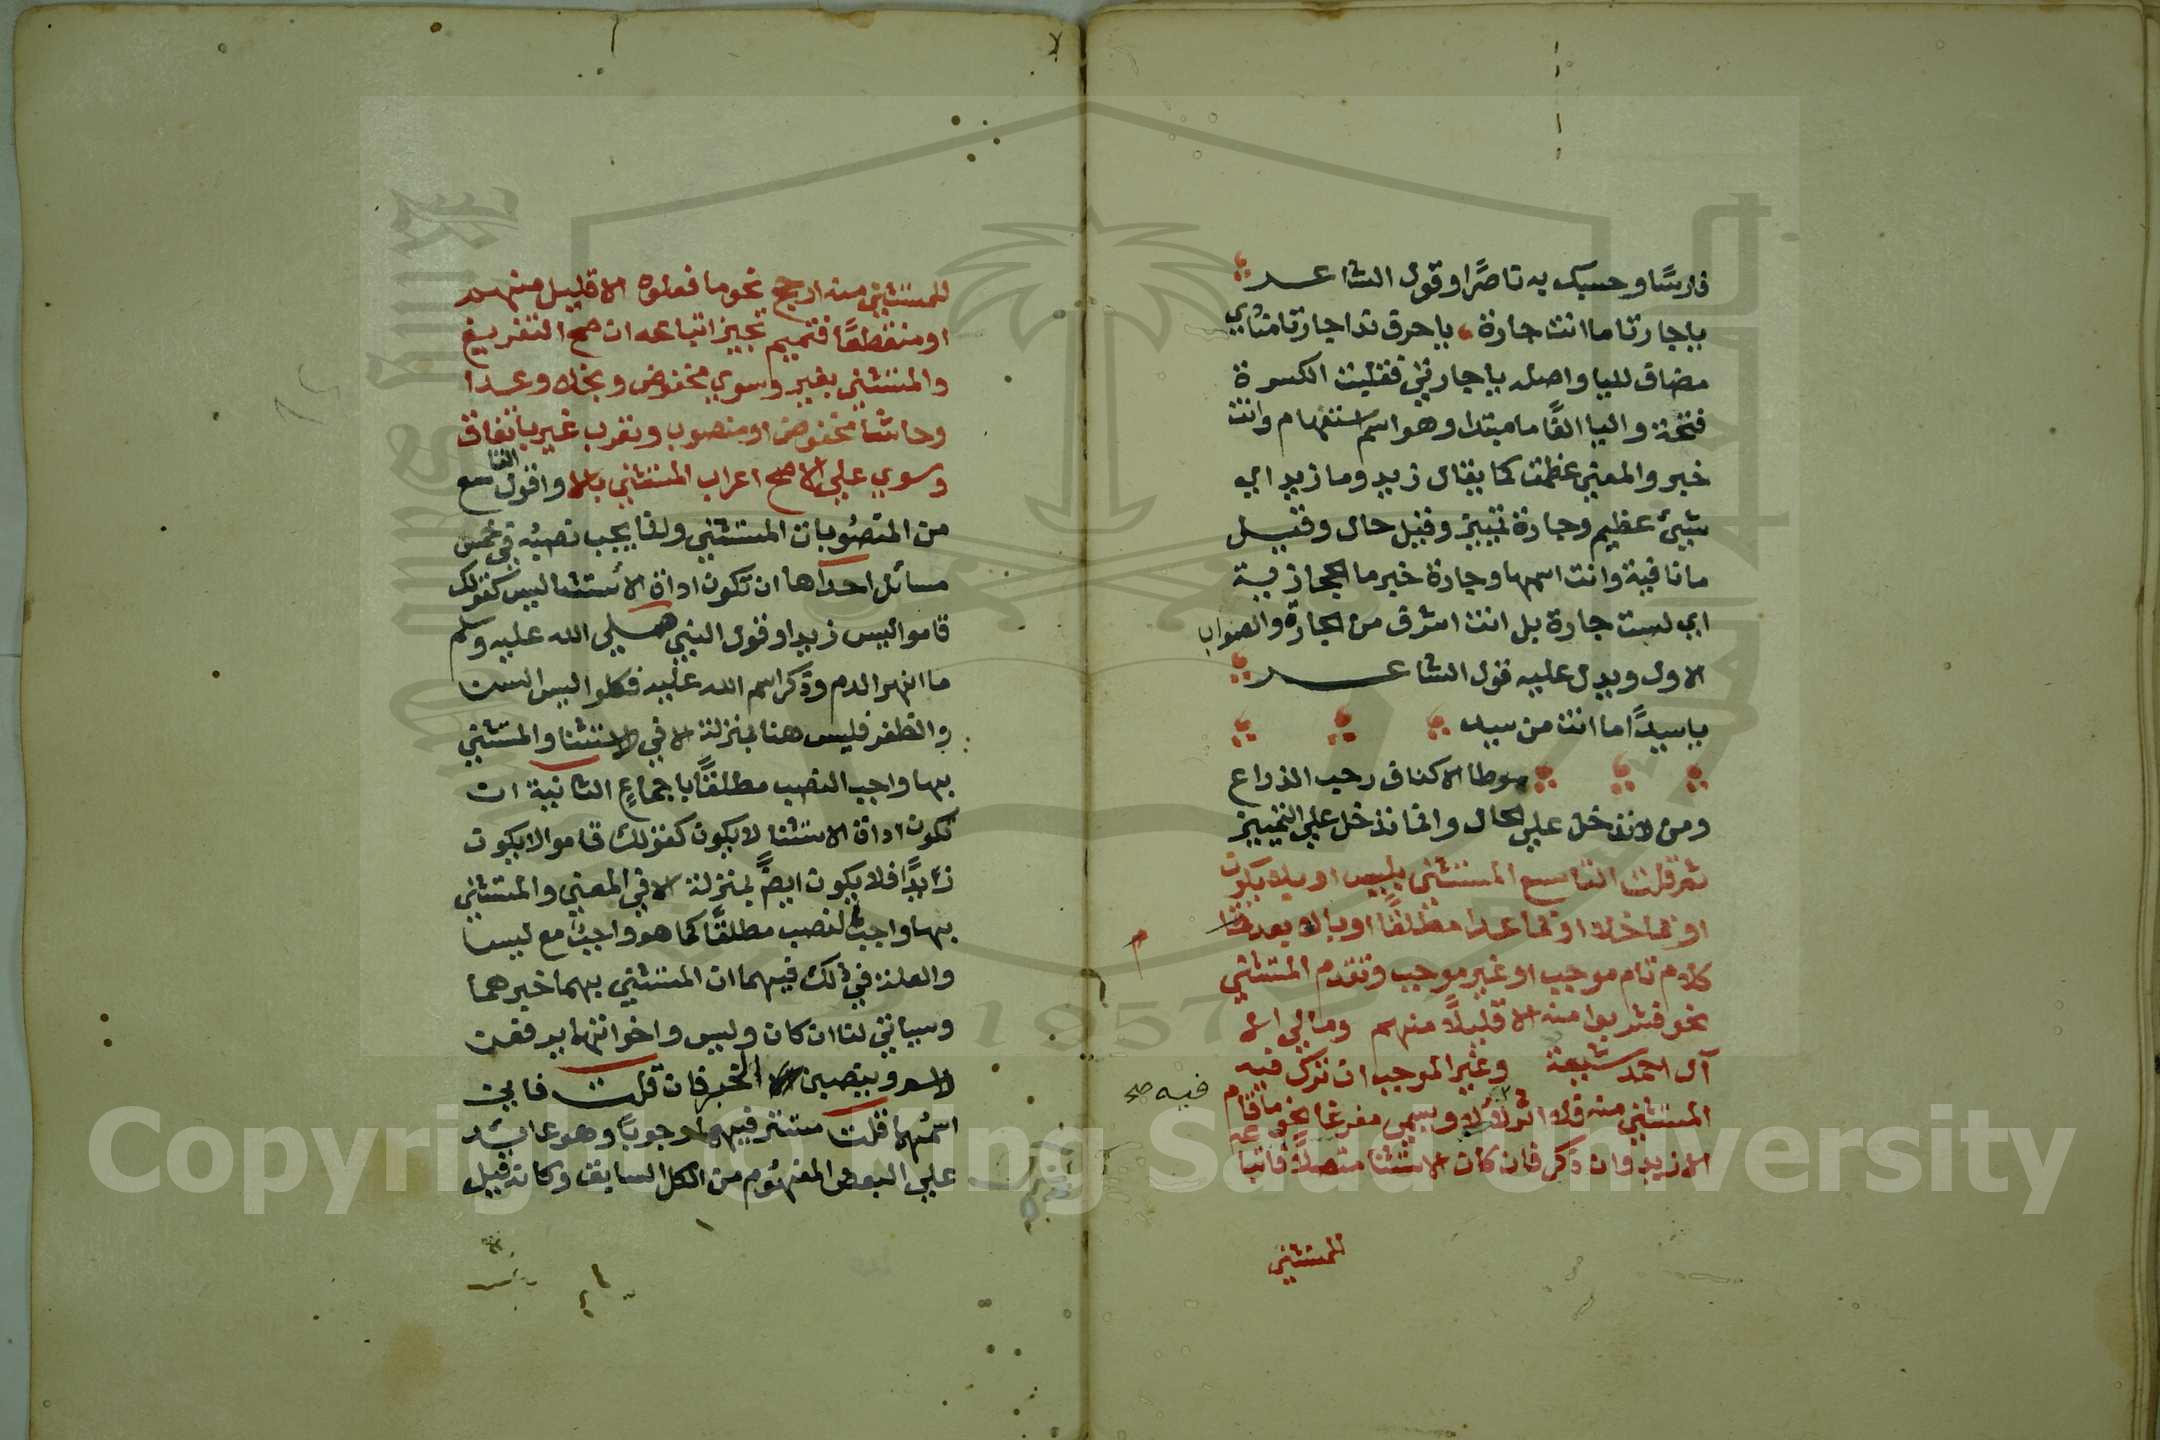 فارسًا وحسبك به ناصرًا وقول الشاعر
يا جارتا ما انت جارة يا حرف ندا جارتا منادي
مضاف لليا واصله يا جارتي فقلبت الكسرة
فتحة واليا الفًا ما مبتدا وهو اسم استفهام وانت
خبر والمعني عظمت كما يقال زيد وما زيد اي
شيئ عظيم وجارة تمييز وقيل حال وقيل
ما نافية وانت اسمها وجارة خبر ما الحجازية
اي لست جارة بل انت اشرف من الجارة والصواب
الاول ويدل عليه قول الشاعر
يا سيدًا ما انت من سيد
موطا الاكناف رحب الذراع
ومن لا تدخل علي الحال وانما تدخل علي التمييز
ثم قلت التاسع المستثني بليس او بلا يكون
او بما خلا او بما عدا مطلقًا او بالا بعد
كلام تام موجب او غير موجب وتقدم المستثني
نحو فشربوا منه الا قليلًا منهم وما لي الا
آل احمد شيعة وغير الموجب ان ترك فيه
فيه صح
المستثني منه فلا اثر لالا ويسمي مفرغا نحو ما قام
الا زيد وان ذكر فان كان الاستثنا متصلًا فاتباعه
للمستثني
للمستثني منه ارجح نحو ما فعلوه الا قليل منهم
او منقطعًا فتميم تجيز اتباعه ان صح التفريغ
والمستثني بغير وسوي مخفوض وبخلا وعدا
وحاشا مخفوض او منصوب وتعرب غير باتفاق
وسوي علي الاصح اعراب المستثني بالا واقول التاسع
من المنصوبات المستثني وانما يجب نصبه في خمس
مسائل احداها ان تكون اداة الاستثنا ليس كقولك
قاموا ليس زيدا وقول النبي صلي الله عليه وسلم
ما انهر الدم وذكر اسم الله عليه فكلوا ليس السن
والظفر فليس هنا بمنزلة الا في الاستثنا والمستثني
بها واجب النصب مطلقًا باجماع الثانية ان
تكون اداة الاستثنا لا يكون كقولك قاموا لا يكون
زيدًا فلا يكون ايضًا بمنزلة الا في المعني والمستثني
بها واجب النصب مطلقًا كما هو واجب مع ليس
والعلة في ذلك فيهما ان المستثني بهما خبرهما
وسياتي لنا ان كان وليس واخواتها يرفعن
الاسم وينصبن الخبر فان قلت فاين
اسمهما قلت مستتر فيهما وجوبًا وهو عائد
علي البعض المفهوم من الكل السابق وكانه قيل